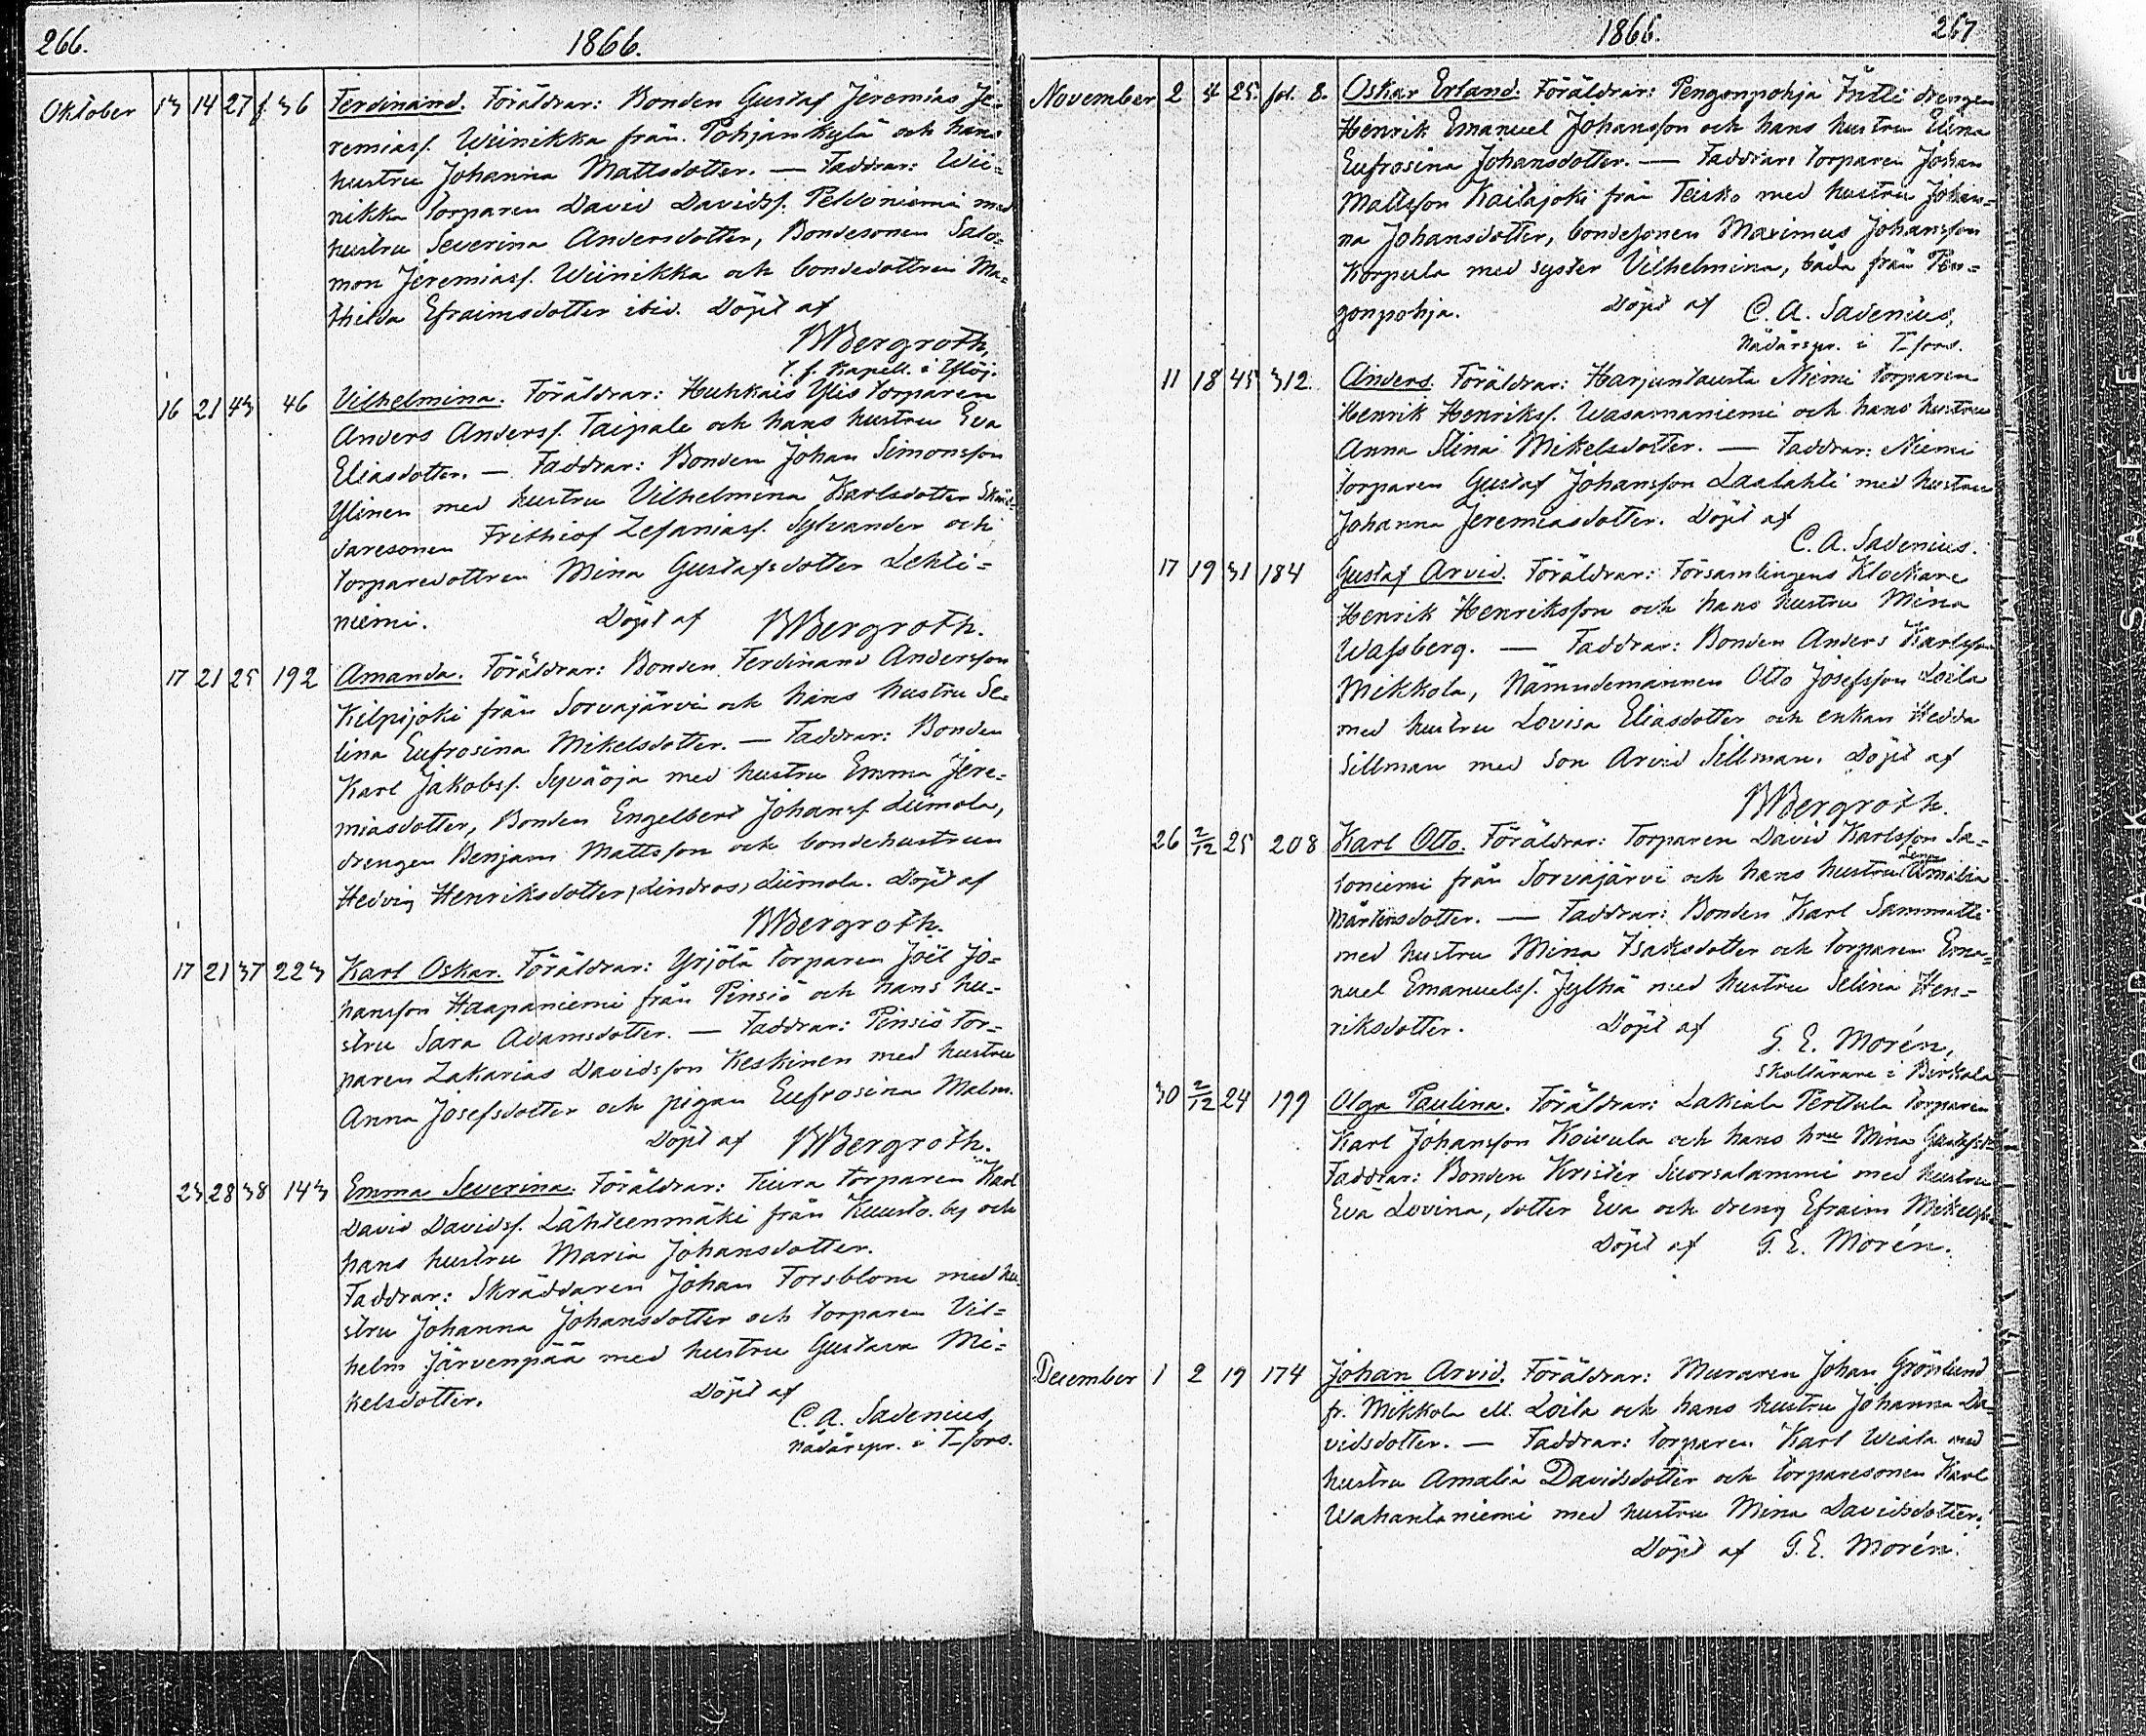 266. 1866.
Oktober 13 14 27 f. 36 Ferdinand. Föräldrar: Bonden Gustaf Jeremias Je-
remiasf. Wiinikka från Pohjankylä och hans
hustru Johanna Mattsdotter. — Faddrar: Wii-
nikka torparen David Davidsf. Peltoniemi med
hustru Severina Andersdotter, Bondesonen Salo-
mon Jeremiasf. Wiinikka och bondedottren Ma-
thilda Efraimsdotter ibid. Döpt af
Bergroth,
t. f. Kapell. i Ylöj.
16 21 43 46 Vilhelmina. Föräldrar: Huhkais Ylis torparen
Anders Andersf. Taipale och hans hustru Eva
Eliasdotter. — Faddrar: Bonden Johan Simonsson
Ylinen med hustru Vilhelmina Karlsdotter Skräd-
daresonen Frithiof Zefaniasf. Sylvander och
torparedottren Mina Gustafsdotter Lehti-
niemi. Döpt af Bergroth.
17 21 25 192 Amanda. Föräldrar: Bonden Ferdinand Andersson
Kilpijoki från Sorvajärvi och hans hustru Se-
lina Eufrosina Mikelsdotter. — Faddrar: Bonden
Karl Jakobsf. Syväoja med hustru Emma Jere-
miasdotter, Bonden Engelbert Johansf. Liimola,
drengen Benjam Mattsson och bondehustrun
Hedvig Henriksdotter, Lindros, Liimola. Döpt af
Bergroth.
17 21 37 223 Karl Oskar. Föräldrar: Yrjölä torparen Joël Jo-
hansson Haapaniemi från Pinsiö och hans hu-
stru Sara Adamsdotter. — Faddrar: Pinsiö tor-
paren Zakarias Davidsson Keskinen med hustru
Anna Josefsdotter och pigan Eufrosina Malm.
Döpt af Bergroth.
23 28 38 143 Emma Severina. Föräldrar: Tiura torparen Karl
David Davidsf. Lähteenmäki från Kuusto by och
hans hustru Maria Johansdotter.
Faddrar: Skräddaren Johan Forsblom med hu-
stru Johanna Johansdotter och torparen Vil-
helm Järvenpää med hustru Gustava Mi-
kelsdotter. Döpt af
C. A. Sadenius,
Nådårspr. i T-fors.
1866. 267
November 2 4 25 fol. 8. Oskar Erland. Föräldrar: Pengonpohja Frilli drengen
Henrik Emanuel Johansson och hans hustru Elina
Eufrosina Johansdotter. — Faddrar: torparen Johan
Mattsson Kaitajoki från Teisko med hustru Johan-
na Johansdotter, bondesonen Maximus Johansson
Korpula med syster Vilhelmina, båda från Pen-
gonpohja. Döpt af C. A. Sadenius,
Nådårspr. i T-fors.
11 18 45 312. Anders. Föräldrar: Harjuntausta Niemi torparen
Henrik Henriksf. Wasamaniemi och hans hustru
Anna Stina Mikelsdotter. — Faddrar: Niemi
torparen Gustaf Johansson Laalahti med hustru
Johanna Jeremiasdotter. Döpt af
C. A. Sadenius.
17 19 31 184 Gustaf Arvid. Föräldrar: Församlingens Klockare
Henrik Henriksson och hans hustru Mina
Wassberg. — Faddrar: Bonden Anders Karlsson
Mikkola, Nämndemannen Otto Josefsson Loila
med hustru Lovisa Eliasdotter och enkan Hedda
Sillman med son Arvid Sillman. Döpt af
Bergroth.
26 2/12 25 208 Karl Otto. Föräldrar: Torparen David Karlsson Sa-
loniemi från Sorvajärvi och hans hustru Lena Amalia
Mårtensdotter. — Faddrar: Bonden Karl Sammatti
med hustru Mina Isaksdotter och torparen Ema-
nuel Emanuelsf. Jylhä med hustru Selina Hen-
riksdotter. Döpt af
G. E. Morén,
Skollärare i Birkala
30 2/12 24 199 Olga Paulina. Föräldrar: Lakiala Perttula torparen
Karl Johansson Koivula och hans hru Mina Gustafsd.
Faddrar: Bonden Krister Suorsalammi med hustru
Eva Lovina, dotter Eva och dreng Efraim Mikelss.
Döpt af G. E. Morén.
December 1 2 19 174 Johan Arvid. Föräldrar: Muraren Johan Grönlund
fr. Mikkola ell. Loila och hans hustru Johanna Da-
vidsdotter. — Faddrar: torparen Karl Wiala med
hustru Amalia Davidsdotter och torparesonen Karl
Wahantaniemi med hustru Mina Davidsdotter.
Döpt af G. E. Morén.
KODAK SAFETY